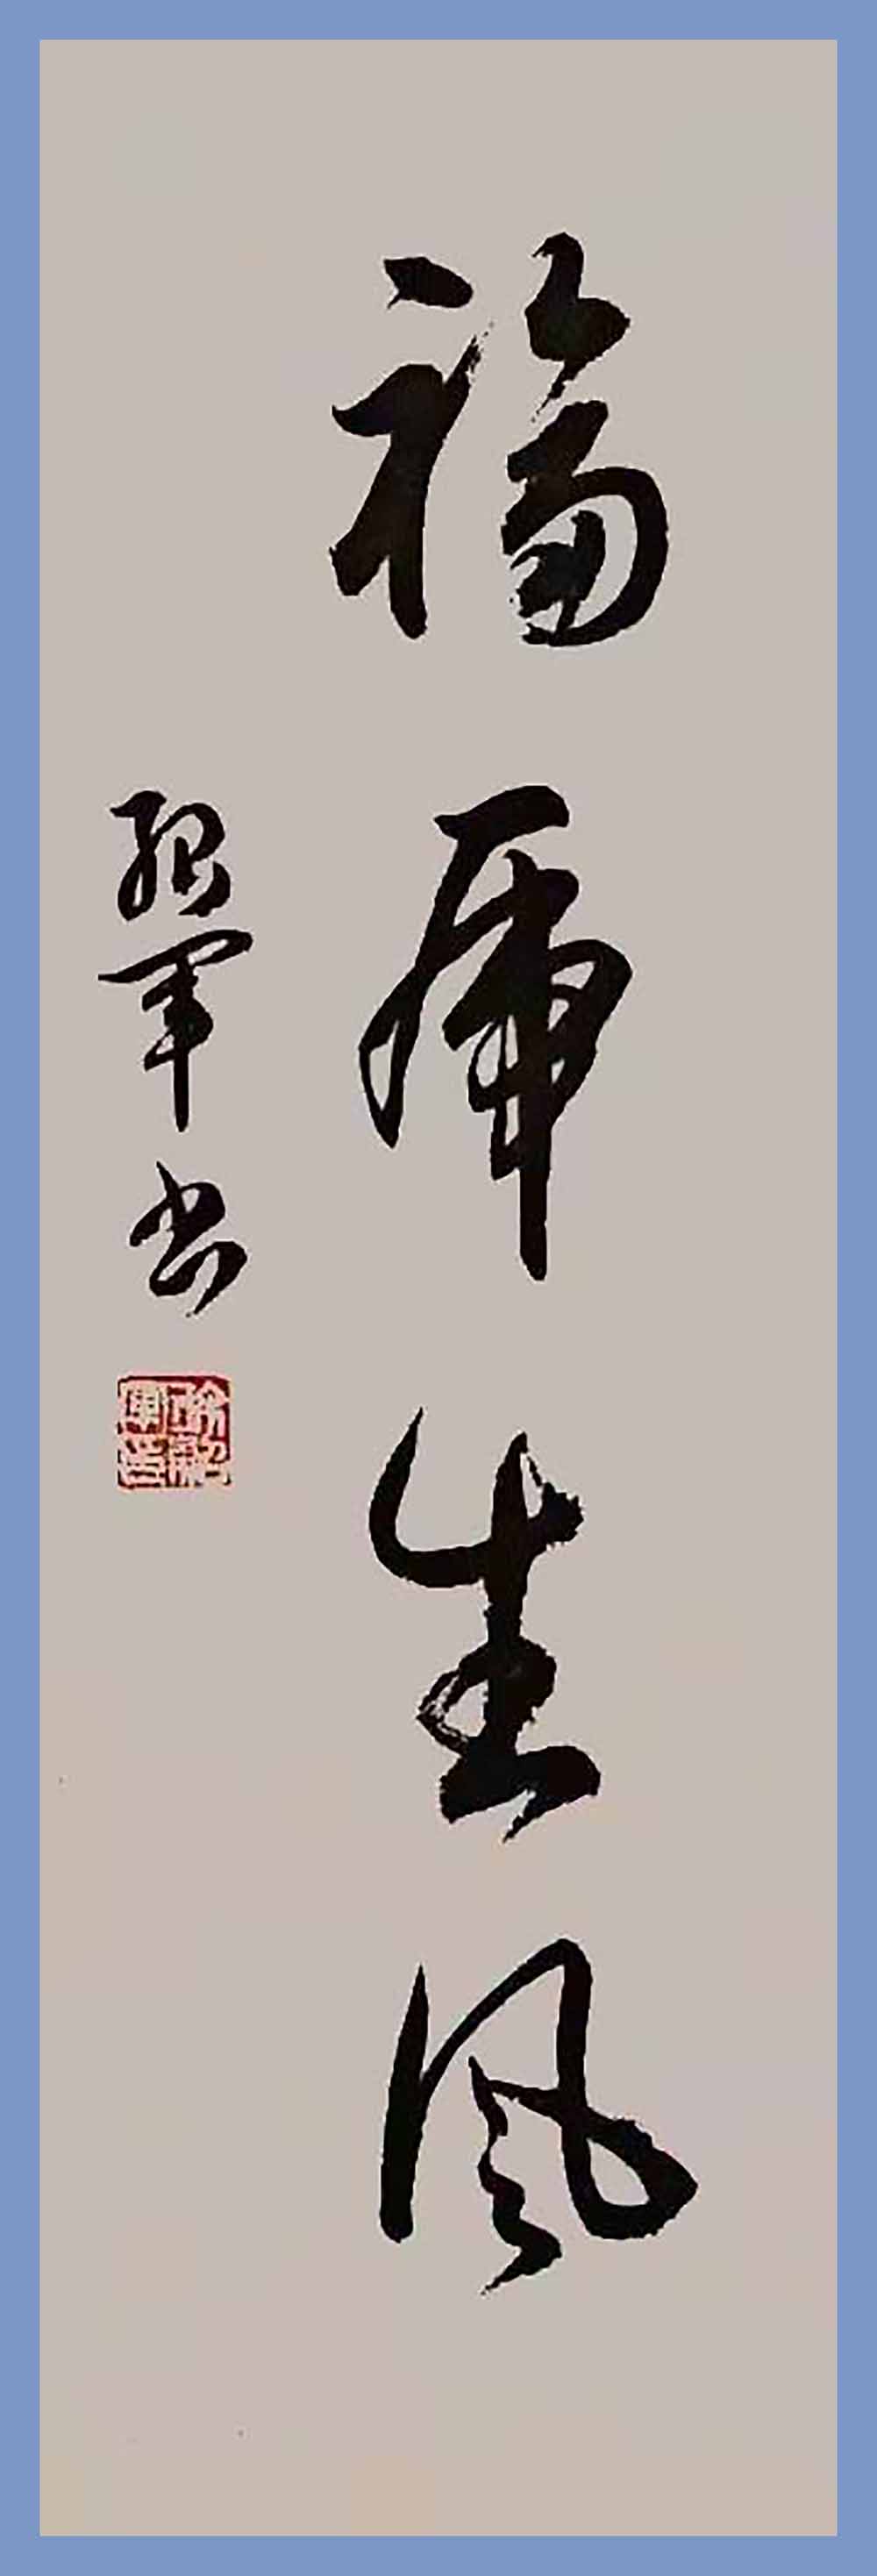 福虎生风
军书